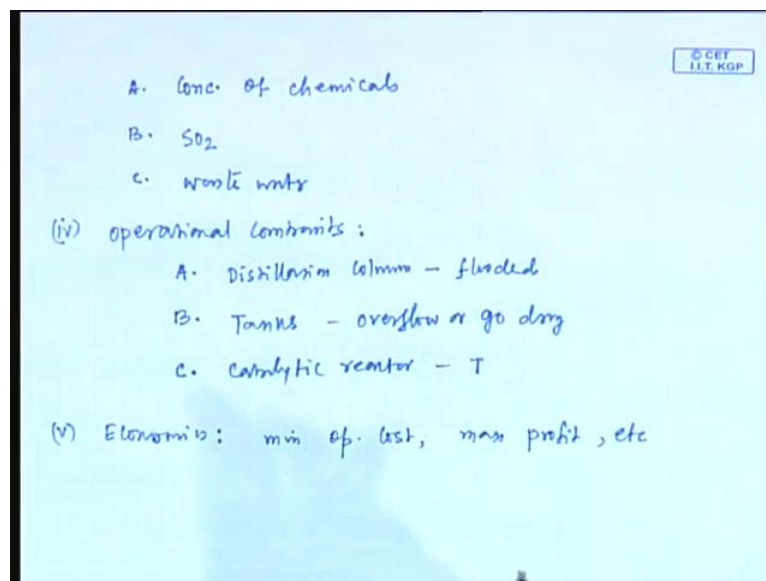 © CET
I.I.T. KGP
A. Conc. of chemicals
B. SO2
C. Waste water
(iv) operational constraints :
A. Distillation column - flooded
B. Tanks - overflow or go dry
C. Catalytic reactor - T
(v) Economics : min op. cost, max profit, etc